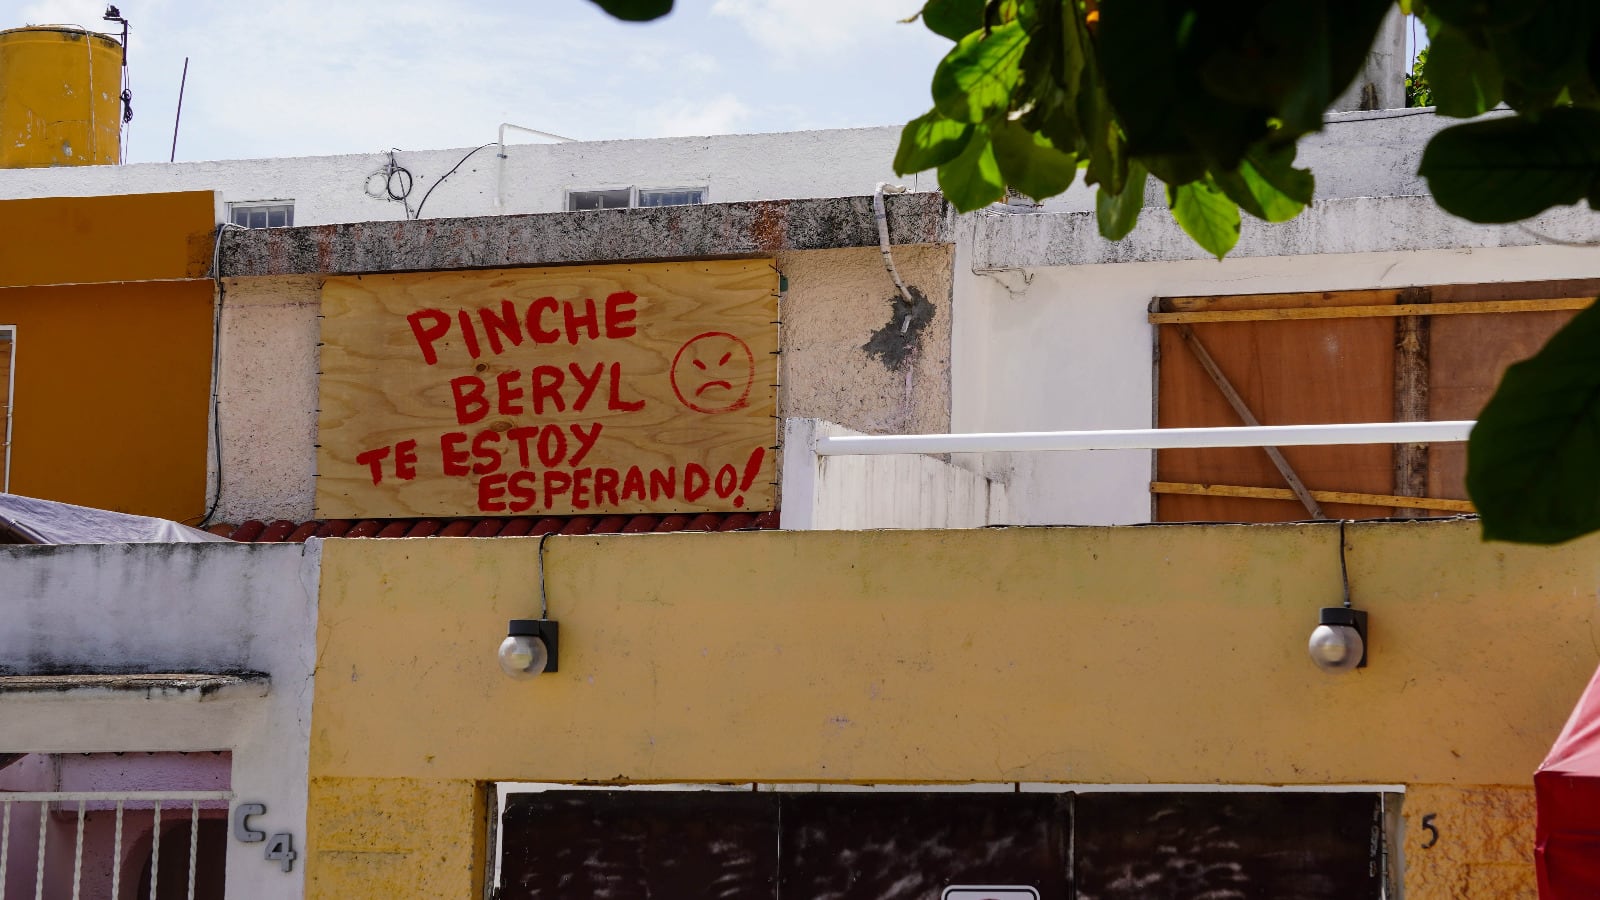 PINCHE
BERYL
TE ESTOY
ESPERANDO!
C4
5